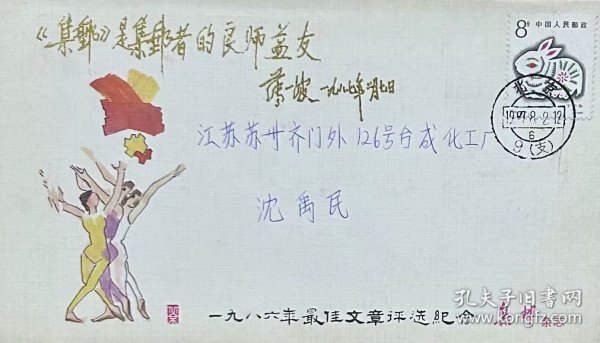 《集郵》是集郵者的良师益友
一九八七年一月七日
8分 中国人民邮政
北京
9(支)
江苏苏州齐门外126号合成化工厂
沈禹民
一九八六年最佳文章评选纪念
集邮杂志
孔夫子旧书网